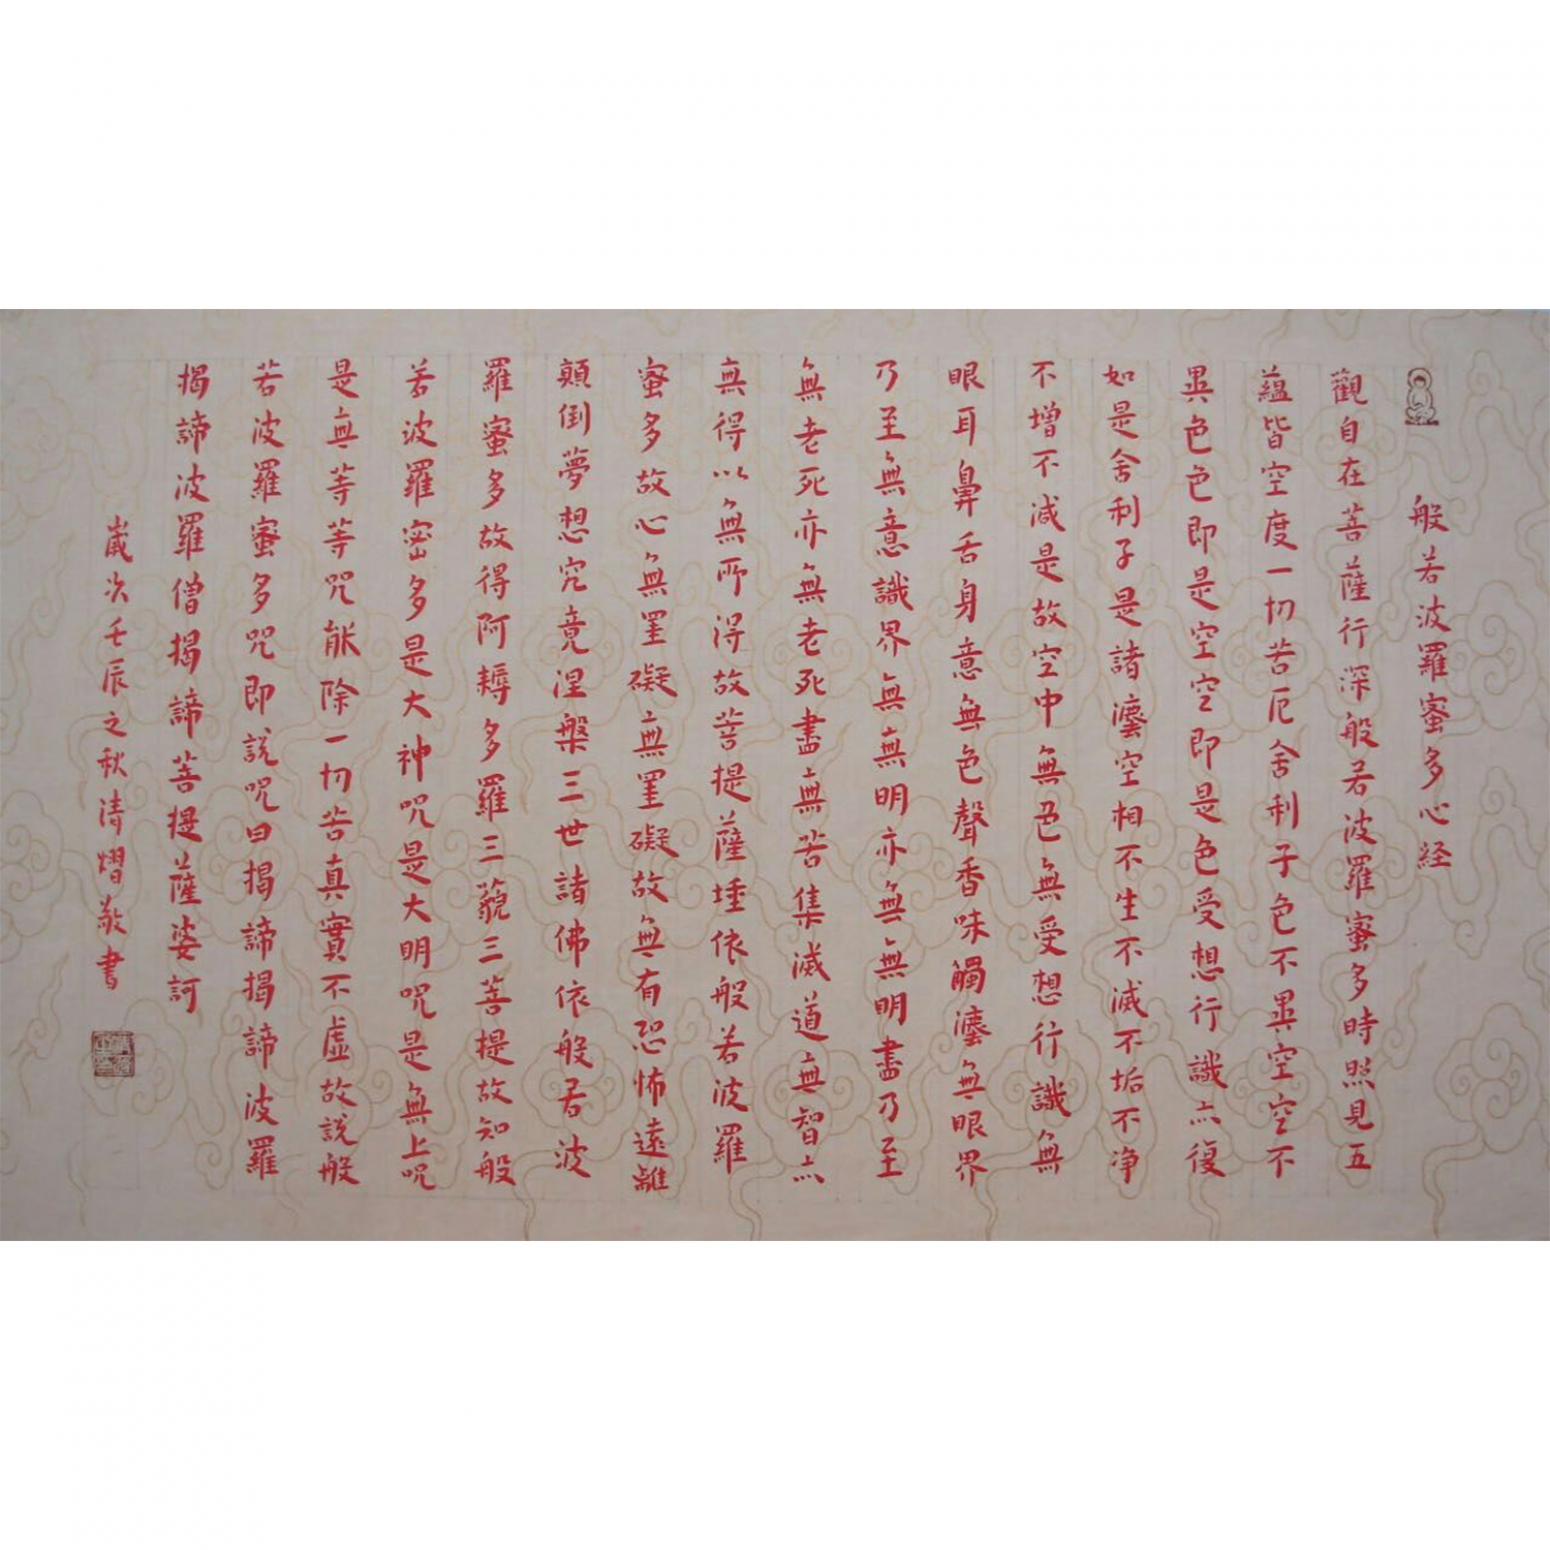 般若波羅蜜多心经
觀自在菩薩行深般若波羅蜜多時照見五
蘊皆空度一切苦厄舍利子色不異空空不
異色色即是空空即是色受想行識亦復
如是舍利子是諸法空相不生不滅不垢不净
不增不减是故空中無色無受想行識無
眼耳鼻舌身意無色聲香味觸法無眼界
乃至無意識界無無明亦無無明盡乃至
無老死亦無老死盡無苦集滅道無智亦
無得以無所得故菩提薩埵依般若波羅
蜜多故心無罣礙無罣礙故無有恐怖遠離
顛倒夢想究竟涅槃三世諸佛依般若波
羅蜜多故得阿耨多羅三藐三菩提故知般
若波羅密多是大神咒是大明咒是無上呪
是無等等咒能除一切苦真實不虛故說般
若波羅蜜多咒即説呪曰揭諦揭諦波羅
揭諦波羅僧揭諦菩提薩婆訶
歲次壬辰之秋清熠敬書